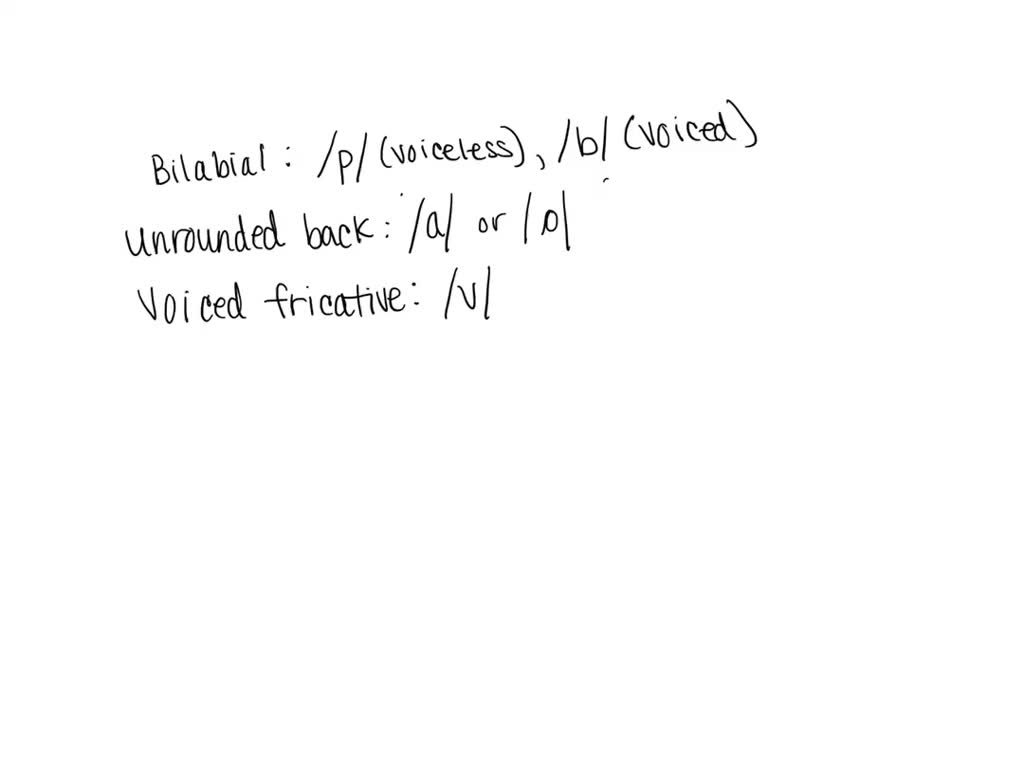 Bilabial: /p/ (voiceless), /b/ (voiced)
unrounded back: /a/ or /o/
Voiced fricative: /v/